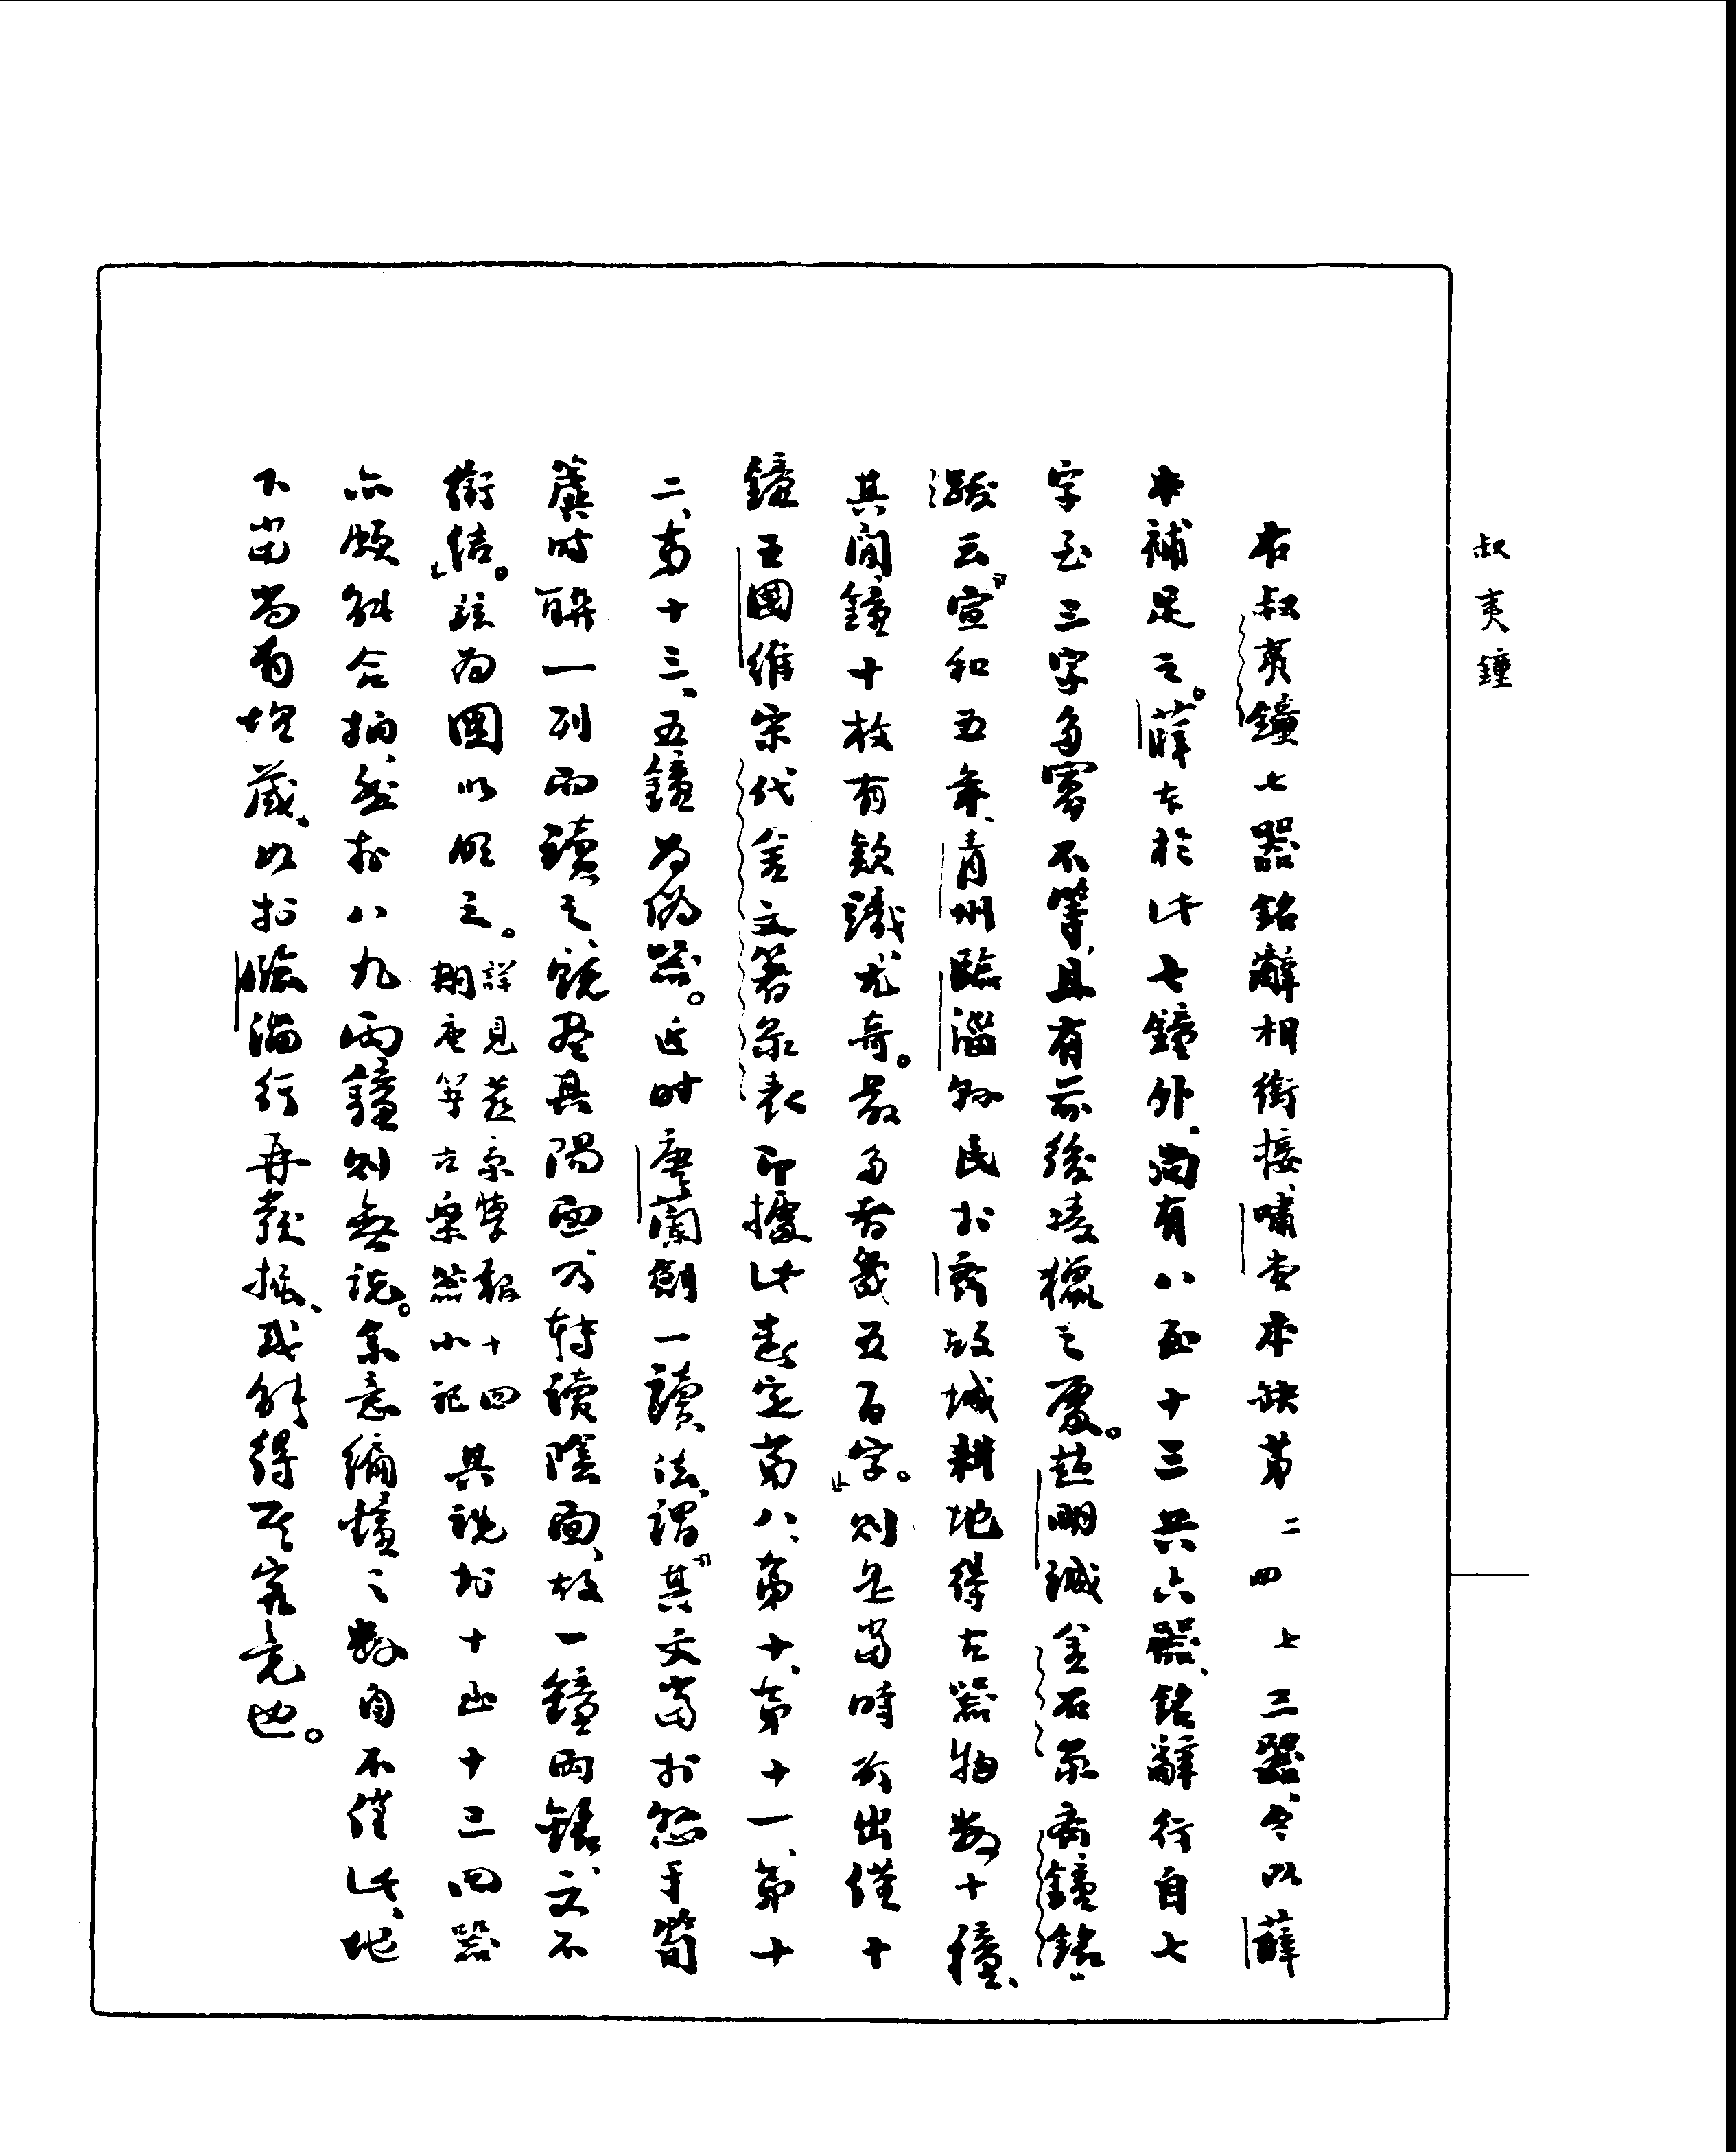 叔夷鐘
右叔夷鐘七器銘辭相銜接、嘯堂本缺第二四七三器、今以薛
本補足之。薛本於此七鐘外、尚有八至十三共六器、銘辭行自七
字至三字多寡不等、且有前後凌獵之處。趙明誠金石录齊鐘銘
跋云『宣和五年、青州臨淄縣民於齊故城耕地得古器物數十種、
其間鐘十枚有款識、尤奇。最多者幾五百字。』則是當時所出僅十
鐘王國維宋代金文著录表即據此遂定第八、第十、第十一、第十
二、第十三、五鐘為偽器。近時唐蘭創一讀法、謂『其文當於懸于筍
簴時聯一列而讀之、說盡其陽面、乃轉讀陰面、故一鐘兩銘、文不
銜結。』竝為圖以明之。詳見燕京學報十四期唐著古樂器小記其說於十至十三四器
亦頗能合拍、然於八九兩鐘則無說。余意編鐘之數自不僅此、地
下當尚有埋藏、如於臨淄行再發掘、或能得其究竟也。